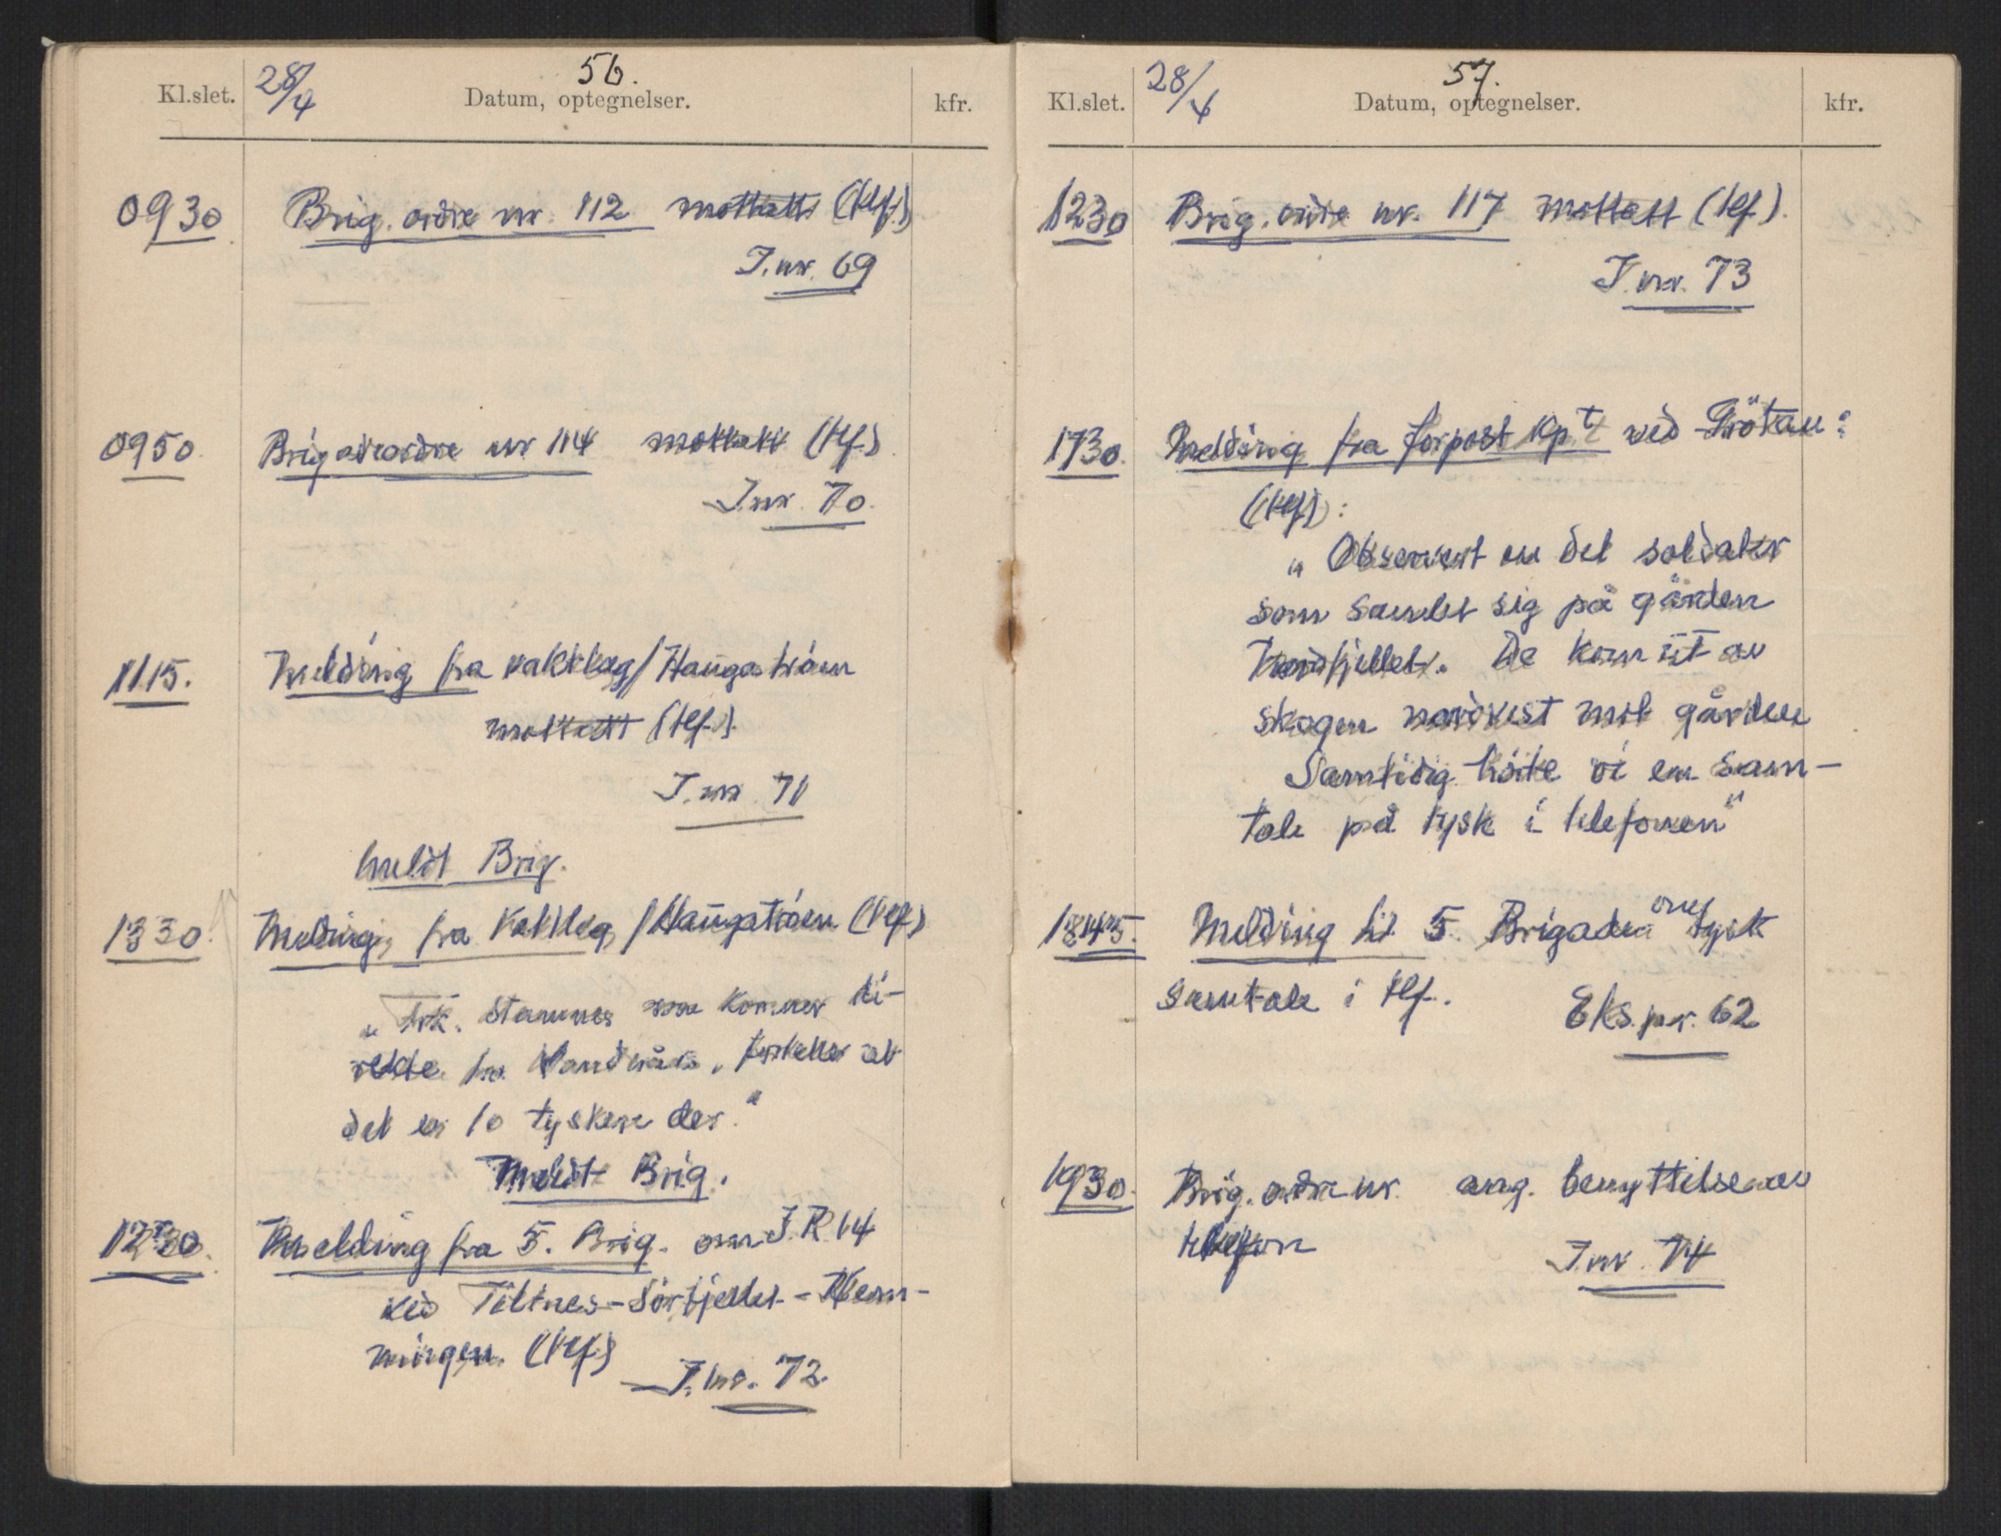 56.
Kl.slet. 28/4 Datum, optegnelser. kfr.
0930 Brig. ordre nr. 112 mottatt (tlf.)
J.nr. 69
0950. Brigadeordre nr 114 mottatt (tlf.)
J.nr. 70.
1115. Melding fra vaktlag/Haugatrøen
mottatt (tlf.).
J.nr. 71
Meldt Brig.
1330. Melding fra vaktlag/Haugatrøen (tlf.)
„ Stamnes som kommer di-
rekte fra forteller at
det er 10 tyskere der."
Meldt Brig.
1230. Melding fra 5. Brig. om J.R. 14
ved Tiltnes-Sørfjellet-
ningen. (tlf.)
J.nr. 72.
57.
Kl.slet. 28/4 Datum, optegnelser. kfr.
1230 Brig. ordre nr. 117 mottatt (tlf.).
J.nr. 73
1730. Melding fra forpost kp.t ved Frötun:
(tlf.):
„ Observert en del soldater
som samlet sig på gården
De kom ut av
skogen nordvest mot gården
Samtidig hörte vi en sam-
tale på tysk i telefonen"
1845. Melding til 5. Brigade om tysk
samtale i tlf.
Eks.nr. 62
1930. Brig. ordre nr. ang. benyttelse av
telefon
J.nr. 74